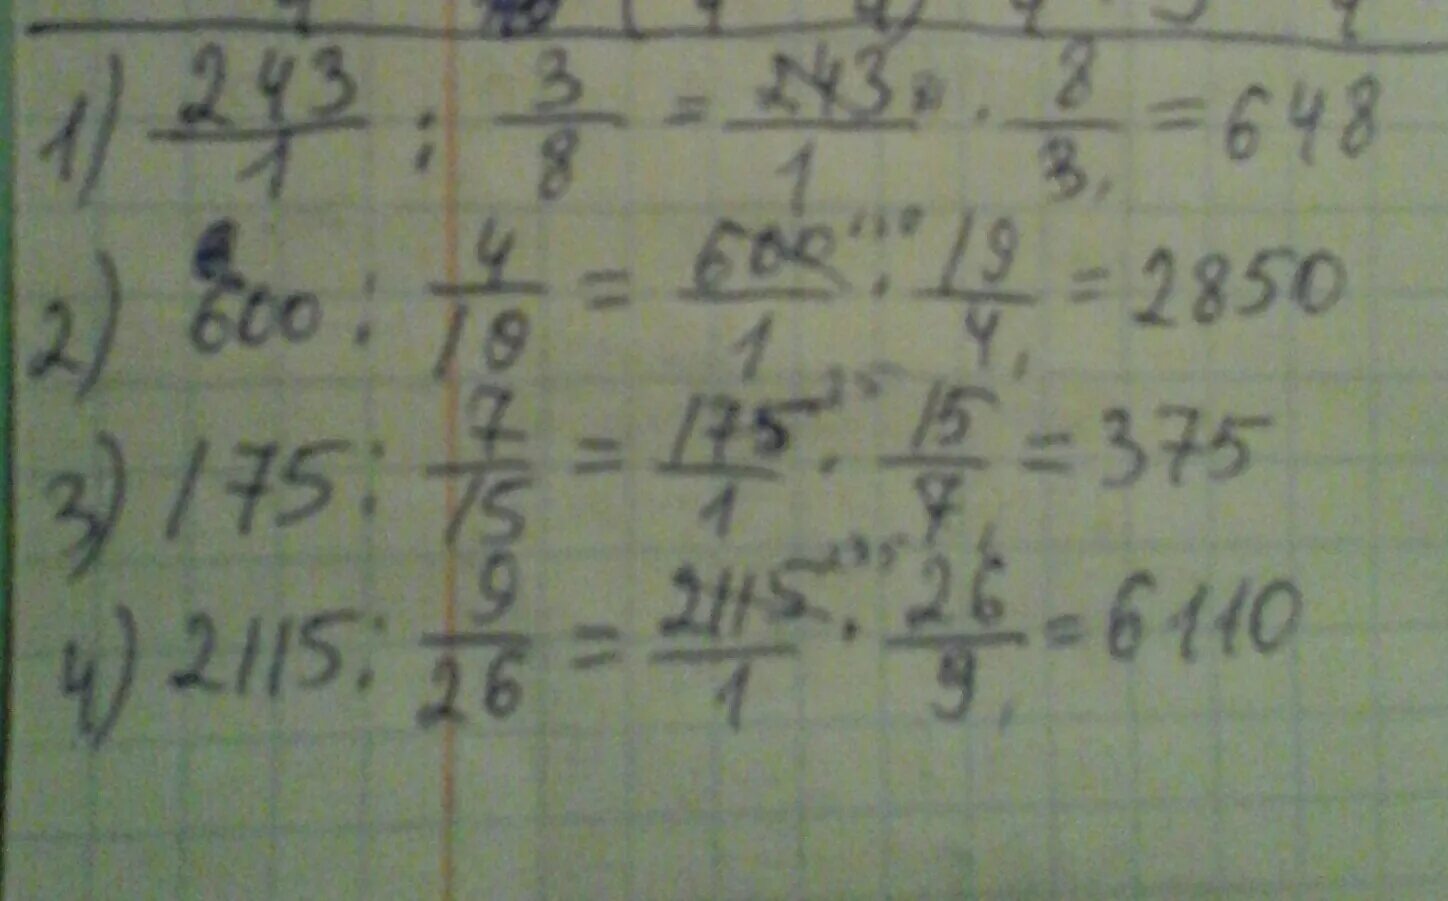 1) 243/1 : 3/8 = 243/1 · 8/3 = 648
2) 600 : 4/19 = 600/1 · 19/4 = 2850
3) 175 : 7/15 = 175/1 · 15/7 = 375
4) 2115 : 9/26 = 2115/1 · 26/9 = 6110